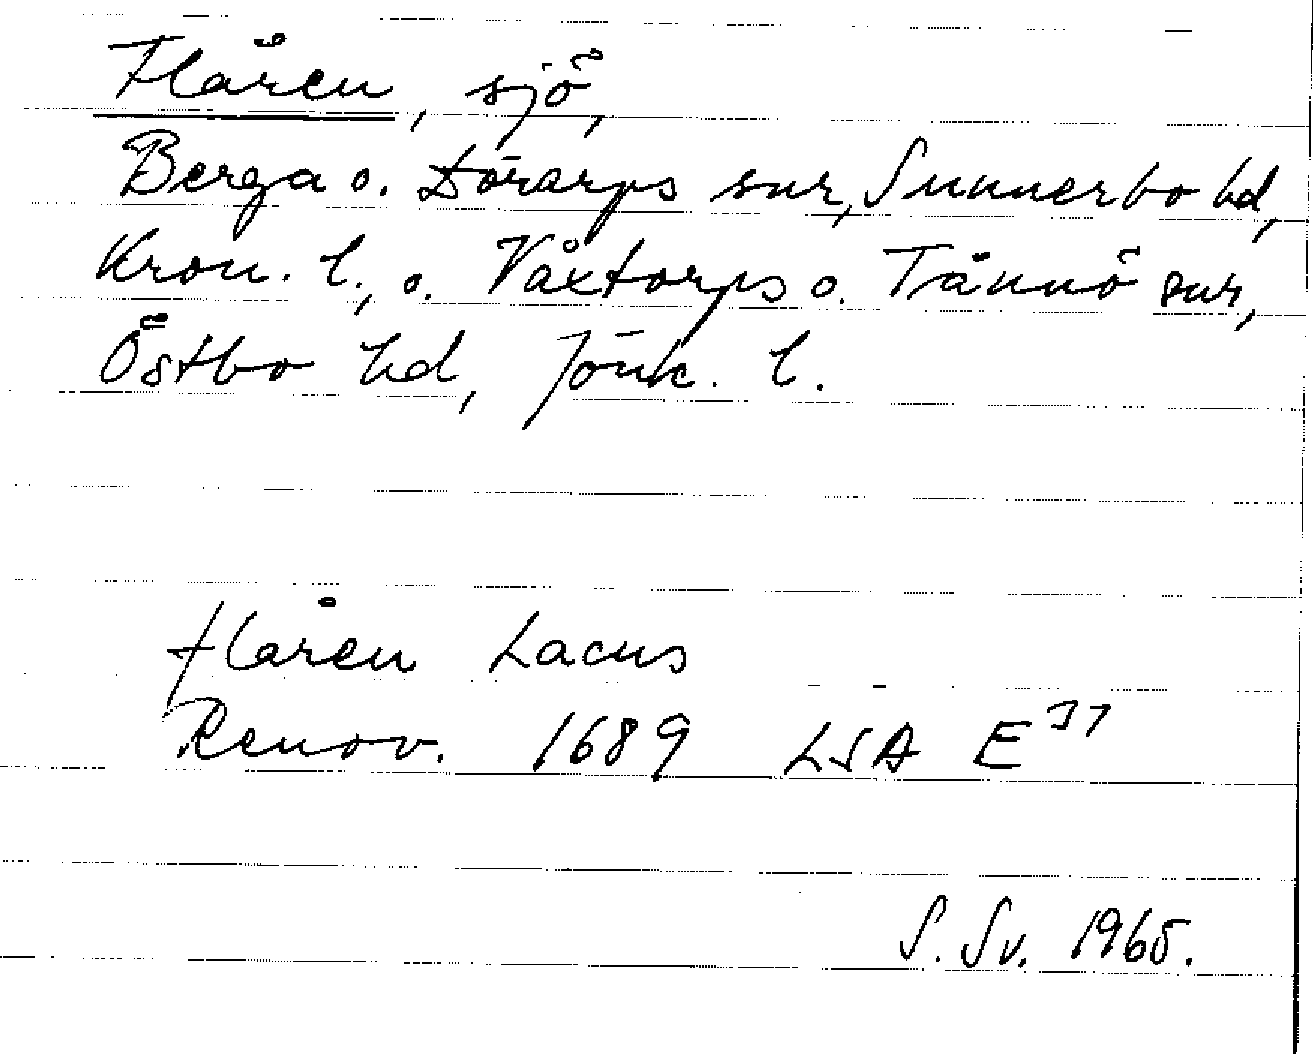 Flåren, sjö,
Berga o. Dörarps snr, Sunnerbo hd,
Kron. l., o. Våxtorps o. Tånnö snr,
Östbo hd, Jönk. l.
Flåren Lacus
Renov. 1689 LSA E 37
S. Sv. 1965.